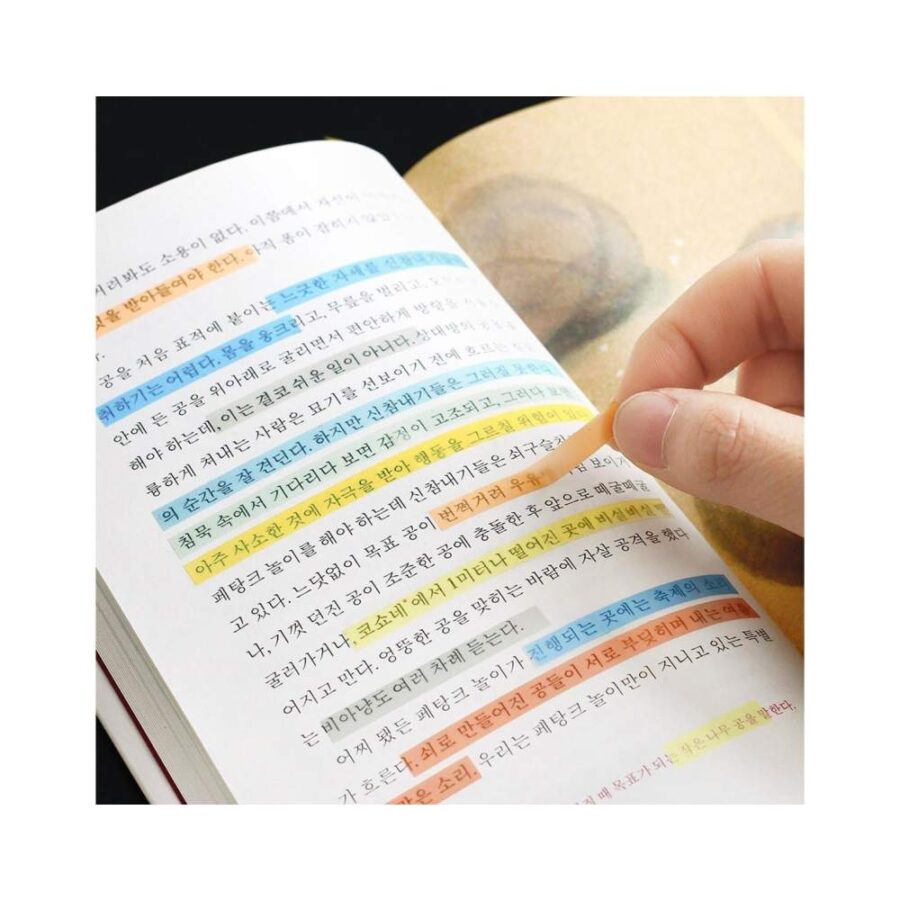 저려봐도 소용이 없다. 이쯤에서 자신이
것을 받아들여야 한다. 아직 퐁이 잡히지 않았
공을 처음 표적에 붙이는 느긋한 자세를 신참내기들
취하기는 어렵다. 몸을 웅크리고, 무릎을 벌리고,
안에 든 공을 위아래로 굴리면서 편안하게 방향을
해야 하는데, 이는 결코 쉬운 일이 아니다. 상대방의 공을
륭하게 쳐내는 사람은 묘기를 선보이기 전에 흐르는
의 순간을 잘 견딘다. 하지만 신참내기들은 그러질 못한다.
침묵 속에서 기다리다 보면 감정이 고조되고, 그러다 보면
아주 사소한 것에 자극을 받아 행동을 그르칠 위험이 있다
페탕크 놀이를 해야 하는데 신참내기들은 쇠구슬치기
고 있다. 느닷없이 목표 공이 번쩍거려 우유 보이기
나, 기껏 던진 공이 조준한 공에 충돌한 후 앞으로 떼굴떼굴
굴러가거나, 코쇼네*에서 1미터나 떨어진 곳에 비실비실
어지고 만다. 엉뚱한 공을 맞히는 바람에 자살 공격을 했다
는 비아냥도 여러 차례 듣는다.
어찌 됐든 페탕크 놀이가 진행되는 곳에는 축제의 소리
가 흐른다. 쇠로 만들어진 공들이 서로 부딪히며 내는 여름
같은 소리. 우리는 페탕크 놀이만이 지니고 있는 특별
때 목표가 되는 작은 나무 공을 말한다.